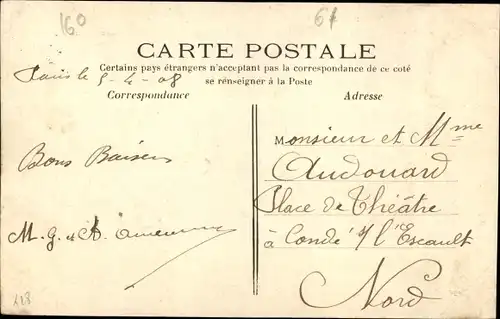 160
67
CARTE POSTALE
Certains pays étrangers n'acceptant pas la correspondance de ce coté
se rénseigner à la Poste
Paris le 5-4-08
Correspondance
Adresse
Monsieur et Mme
Audouard
Place de Théâtre
à Condé s/ l'Escault
Nord
Bons Baisers
M. G. et A.